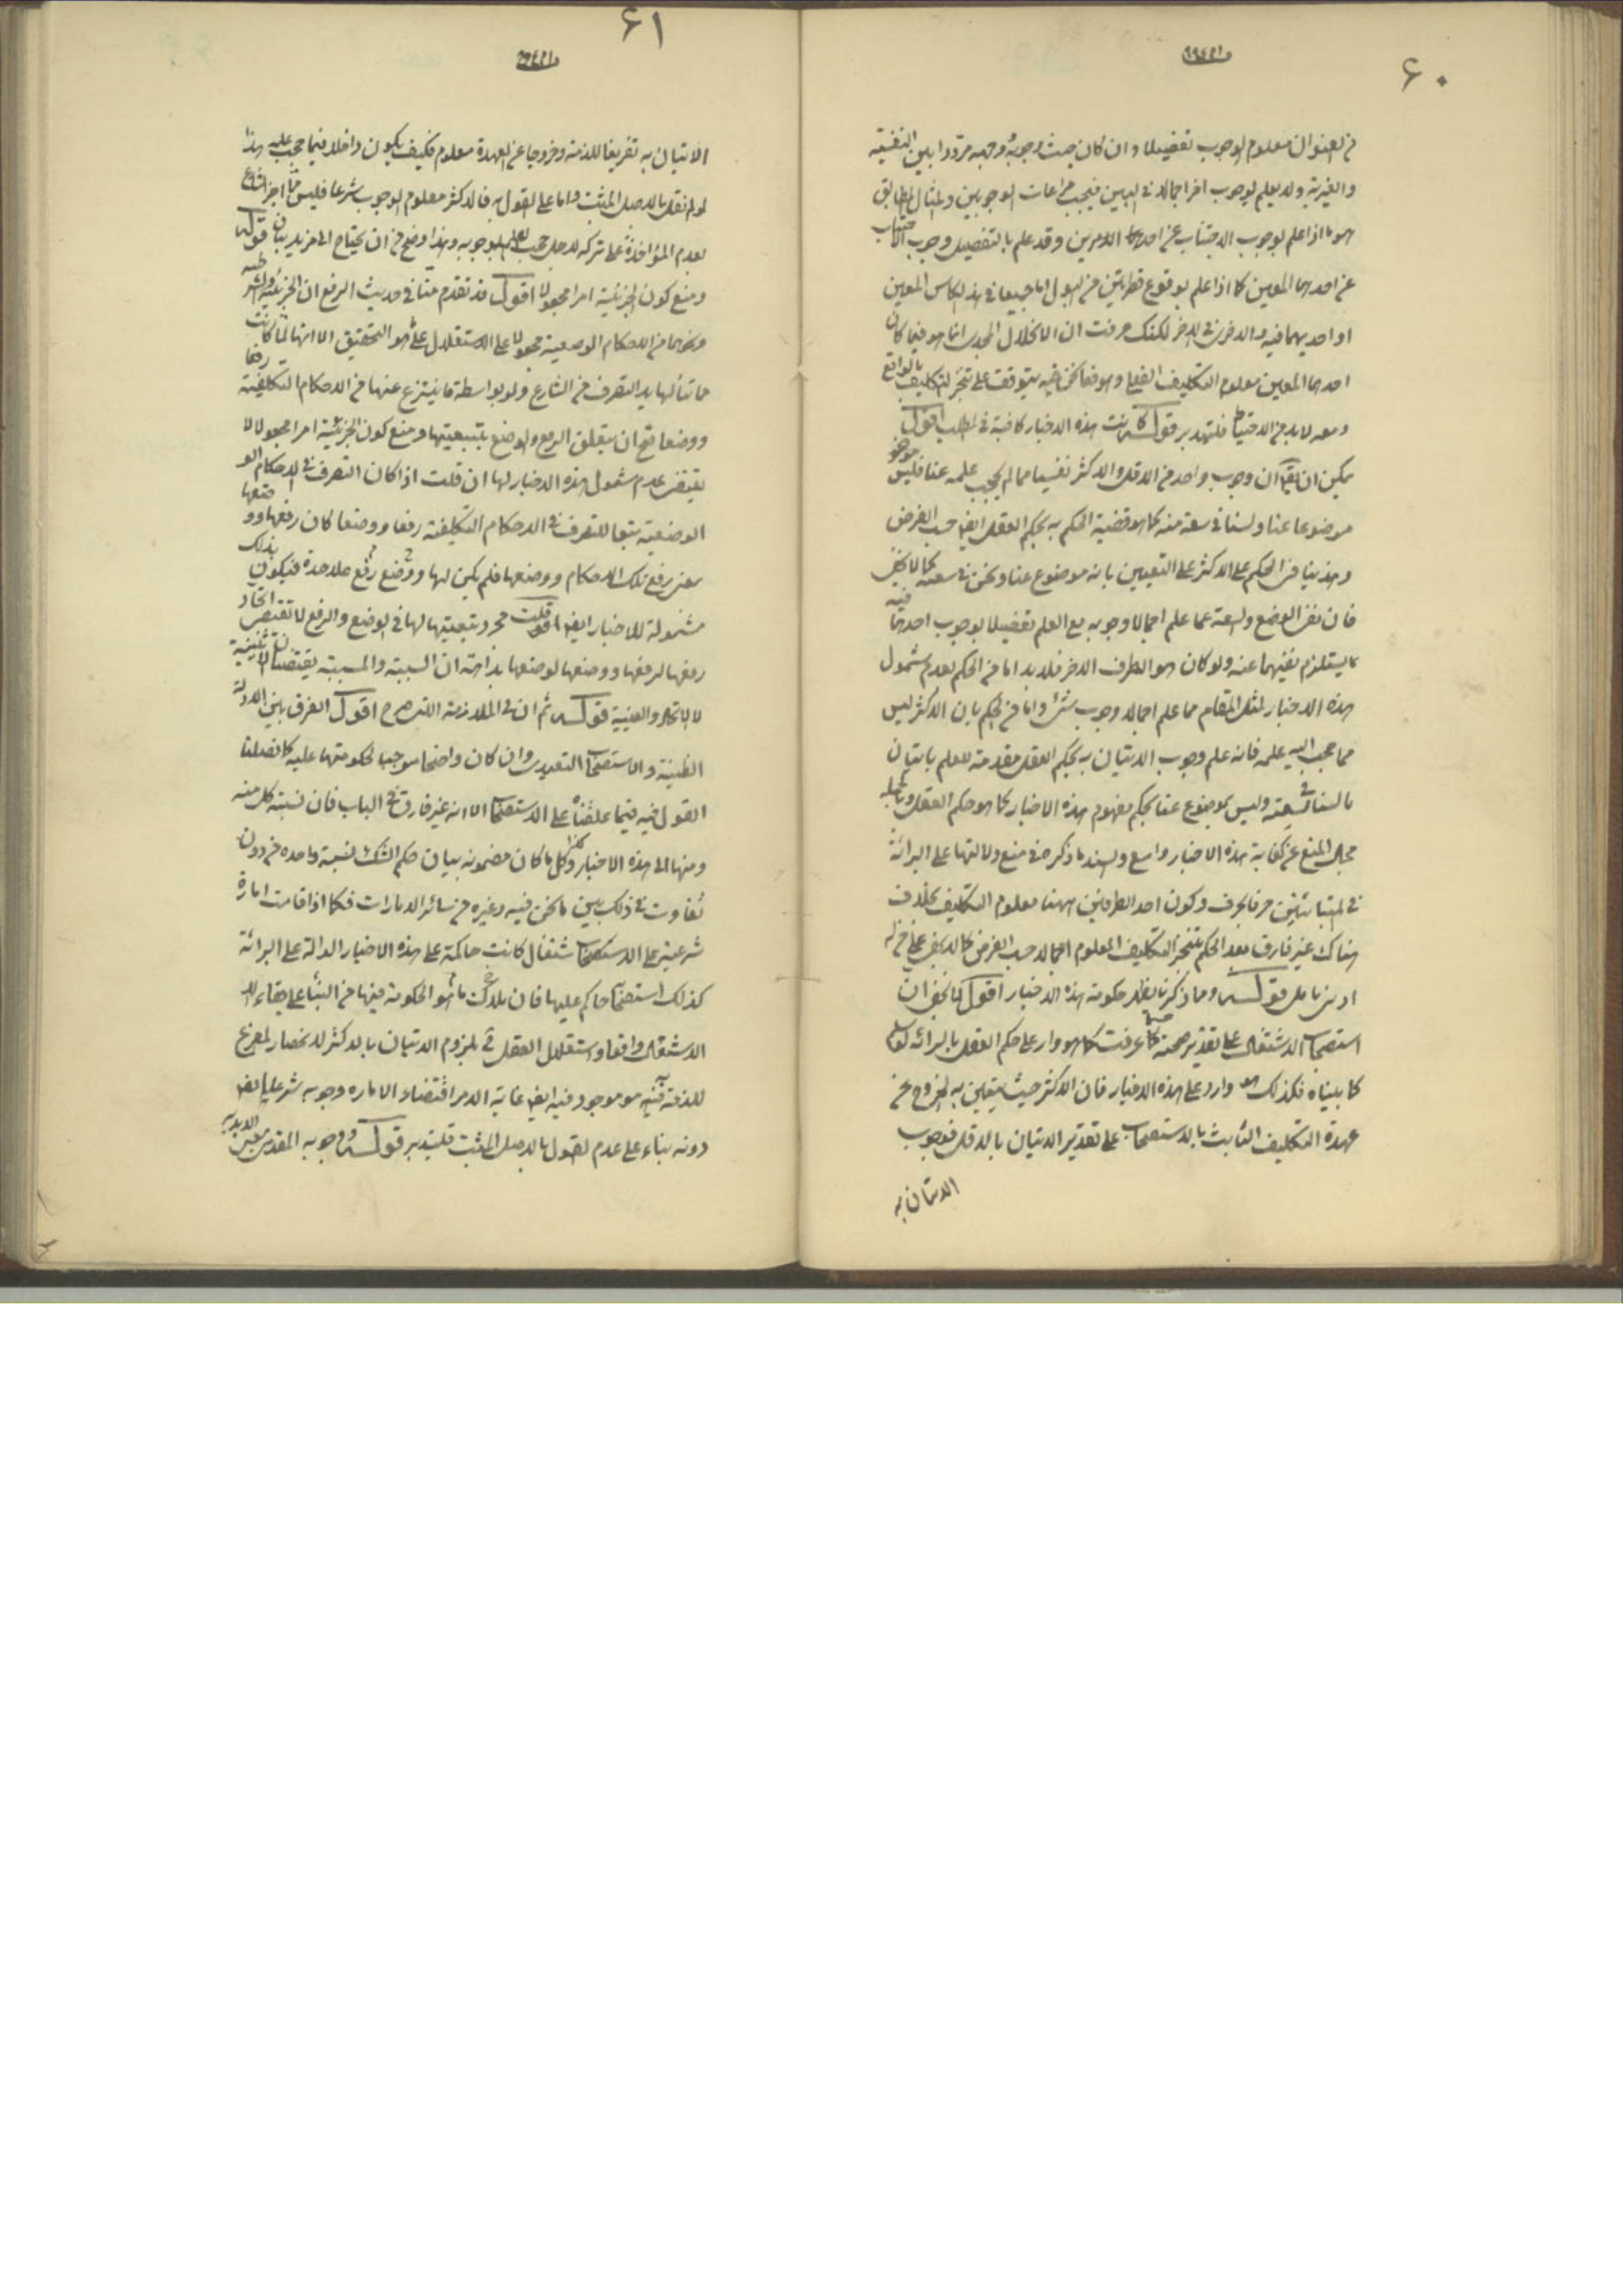 ۶۰
من العنوان معلوم الوجوب تفصيلا وان كان حيث وجوبه وجهه مرددا بين النفسية
والغيرية ولا يعلم بوجوب اخر اجمالا في البين فيجب مراعات الوجوبين والمثال المطابق
هو ما اذا علم بوجوب الاجتناب عن احدهما الامرين وقد علم بالتفصيل وجوب الاجتناب
عن احدهما المعين كما اذا علم بوقوع قطرتين من البول اما جميعا في هذا الكاس المعين
او احديهما فيه والاخرى في الاخر لكنك عرفت ان الانحلال المجدى انما هو فيما كان
احدهما المعين معلوم التكليف الفعلى وهو فيما نحن فيه يتوقف على تنجز التكليف بالواقع
ومعه لا بد من الاحتياط فليتدبر قوله كانت هذه الاخبار كافية في المطلب اقول
يمكن ان يقال ان وجوب واحد من الاقل والاكثر نفسيا مما لم يحجب علمه عنا فليس
موضوعا عنا ولسنا في سعة منه كما هو قضية الحكم به بحكم العقل ايضا حسب الفرض
وهذا ينافى الحكم على الاكثر على التعيين بانه موضوع عنا ونحن في سعته كما لا يخفى
فان نفى الوضع والسعة عما علم اجمالا وجوبه مع العلم تفصيلا بوجوب احدهما فيه
ما يستلزم نفيهما عنه ولو كان هو الطرف الاخر فلا بد اما من الحكم بعدم شمول
هذه الاخبار لمثل المقام مما علم اجمالا وجوب شئ واما من الحكم بان الاكثر ليس
مما حجب الله علمه فانه علم وجوب الاتيان به بحكم العقل مقدمة للعلم باتيان
ما لسنا في سعته وليس بموضوع عنا بحكم مفهوم هذه الاخبار كما هو حكم العقل وبالجملة
مجال المنع عن كفاية هذه الاخبار واسع والسند ما ذكره في منع دلالتها على البرائة
في المتباينين حرفا بحرف وكون احد الطرفين ههنا معلوم التكليف بخلاف
هناك غير فارق بعد الحكم بتنجز التكليف المعلوم اجمالا حسب الفرض كما لا يخفى على من له
ادنى تامل قوله وما ذكرنا يظهر حكومة هذه الاخبار اقول لا يخفى ان
استصحاب الاشتغال على تقدير صحته كما عرفت كما هو وارد على حكم العقل بالبرائة
كما بيناه فكذلك هو وارد على هذه الاخبار فان الاكثر حيث يتعين به الخروج عن
عهدة التكليف الثابت بالاستصحاب على تقدير الاتيان بالاقل فوجوب
الاتيان به
۶۱
الاتيان به تفريغا للذمة وخروجا عن العهدة معلوم فكيف يكون داخلا فيما حجب علمه هذا
لو لم نقل بالاصل المثبت واما على القول به فالاكثر معلوم الوجوب شرعا فليس مما اخبر الشارع
بعدم المؤاخذة على تركه لاجل حجب العلم بوجوبه وهذا اوضح من ان يحتاج الى مزيد بيان قوله
ومنع كون الجزئية امرا مجعولا اقول قد تقدم منا في حديث الرفع ان الجزئية والشرطية
ونحوهما من الاحكام الوضعية مجعولا على الاستقلال على ما هو التحقيق الا انها لما كانت
مما تنالها يد التصرف من الشارع ولو بواسطة ما ينتزع عنها من الاحكام التكليفية رفعا
ووضعا صح ان يتعلق الرفع والوضع بتبعيتها ومنع كون الجزئية امرا مجعولا لا
يقتضى عدم شمول هذه الاخبار لها ان قلت اذا كان التصرف في الاحكام
الوضعية تبعا للتصرف في الاحكام التكليفية رفعا ووضعا كان رفعها ووضعها
عين رفع تلك الاحكام ووضعها فلم يكن لها وضع رفع علاحدة فيكون بذلك
مشمولة للاخبار ايضا قلت مجرد تبعيتها لها في الوضع والرفع لا تقتضى اتحاد
رفعها لرفعها ووضعها لوضعها بداهة ان السببية والمسببية يقتضيان الاثنينية
لا الاتحاد والعينية قوله ثم ان في الملازمة التى صرح اقول الفرق بين الادلة
الظنية والاستصحاب التعبدى وان كان واضحا موجبا لحكومتها عليه كما فصلنا
القول فيه فيما علقناه على الاستصحاب الا انه غير فارق في الباب فان نسبة كل منه
ومنها الى هذه الاخبار وكل ما كان مضمونه بيان حكم الشك نسبة واحده من دون
تفاوت في ذلك بين ما نحن فيه وغيره من سائر الامارات فكما اذا قامت امارة
شرعية على الاشتغال كانت حاكمة على هذه الاخبار الدالة على البرائة
كذلك استصحابه حاكم عليها فان ملاك ما هو الحكومة فيها من البناء على بقاء
الاشتغال واقعا واستقلال العقل في بلزوم الاتيان بالاكثر لانحصار المفرغ
للذمة فيه هو موجود فيه ايضا غاية الامر اقتضاء الاماره وجوبه شرعا ايضا
دونه بناء على عدم القول بالاصل المثبت فليتدبر قوله ووجوبه المقدمى بعين